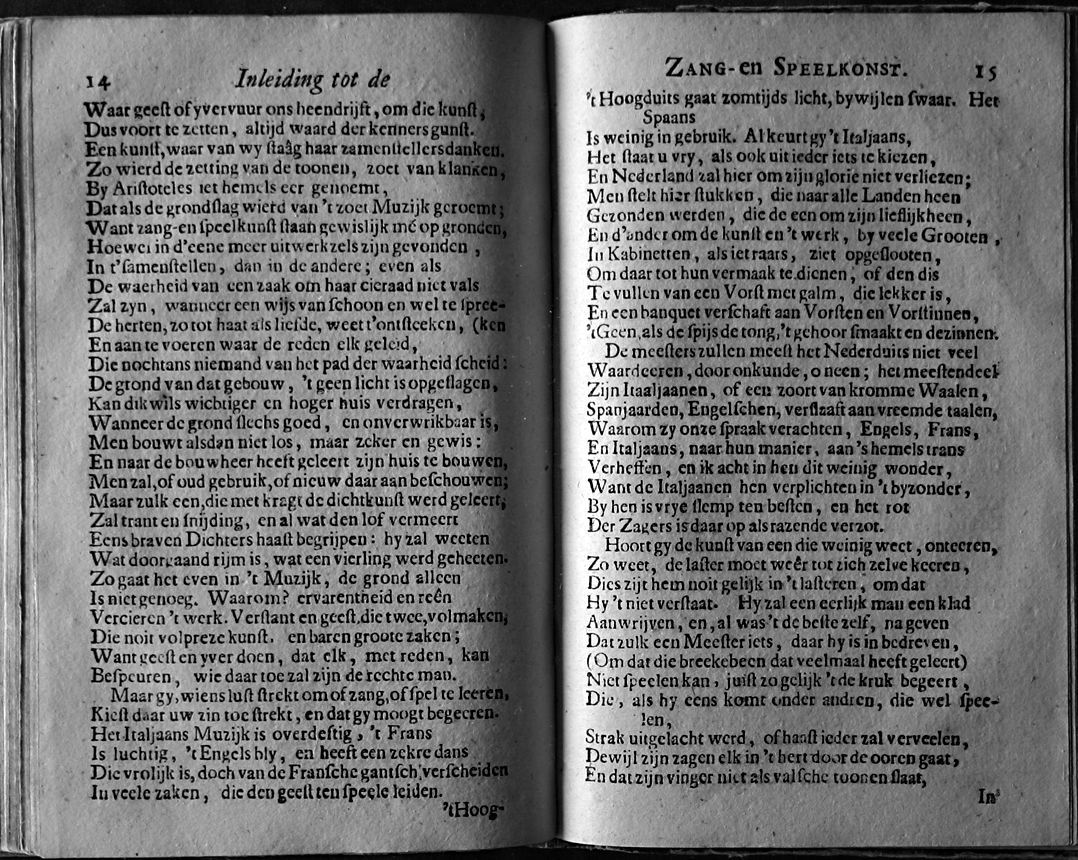 14 Inleiding tot de
Waar geeſt of yvervuur ons heendrijft, om die kunſt,
Dus voort te zetten, altijd waard der kenners gunſt.
Een kunſt, waar van wy ſtaâg haar zamenſtellers danken.
Zo wierd de zetting van de toonen, zoet van klanken,
By Ariſtoteles iet hemels eer genoemt,
Dat als de grondſlag wierd van 't zoet Muzijk geroemt;
Want zang-en ſpeelkunſt ſtaan gewislijk mé op gronden,
Hoewel in d'eene meer uitwerkzels zijn gevonden,
In t'ſamenſtellen, dan in de andere; even als
De waerheid van een zaak om haar cieraad niet vals
Zal zyn, wanneer een wijs van ſchoon en wel te ſpree-
De herten, zo tot haat als liefde, weet t'ontſteeken, (ken
En aan te voeren waar de reden elk geleid,
Die nochtans niemand van het pad der waarheid ſcheid:
De grond van dat gebouw, 't geen licht is opgeſlagen,
Kan dikwils wichtiger en hoger huis verdragen,
Wanneer de grond ſlechs goed, en onverwrikbaar is,
Men bouwt alsdan niet los, maar zeker en gewis:
En naar de bouwheer heeft geleert zijn huis te bouwen,
Men zal, of oud gebruik, of nieuw daar aan beſchouwen;
Maar zulk een, die met kragt de dichtkunſt werd geleert,
Zal trant en ſnijding, en al wat den lof vermeert
Eens braven Dichters haaſt begrijpen: hy zal weeten
Wat doorgaand rijm is, wat een vierling werd geheeten.
Zo gaat het even in 't Muzijk, de grond alleen
Is niet genoeg. Waarom? ervarentheid en reên
Vercieren 't werk. Verſtant en geeſt, die twee, volmaken,
Die noit volpreze kunſt. en baren groote zaken;
Want geeſt en yver doen, dat elk, met reden, kan
Beſpeuren, wie daar toe zal zijn de rechte man.
Maar gy, wiens luſt ſtrekt om of zang, of ſpel te leeren,
Kieſt daar uw zin toe ſtrekt, en dat gy moogt begeeren.
Het Italjaans Muzijk is overdeftig, 't Frans
Is luchtig, 't Engels bly, en heeft een zekre dans
Die vrolijk is, doch van de Franſche gantſch verſcheiden
In veele zaken, die den geeſt ten ſpeele leiden.
'tHoog-
ZANG-en SPEELKONST. 15
't Hoogduits gaat zomtijds licht, bywijlen ſwaar. Het
Spaans
Is weinig in gebruik. Al keurt gy 't Italjaans,
Het ſtaat u vry, als ook uit ieder iets te kiezen,
En Nederland zal hier om zijn glorie niet verliezen;
Men ſtelt hier ſtukken, die naar alle Landen heen
Gezonden werden, die de een om zijn lieflijkheen,
En d'ander om de kunſt en 't werk, by veele Grooten,
In Kabinetten, als iet raars, ziet opgeſlooten,
Om daar tot hun vermaak te dienen, of den dis
Te vullen van een Vorſt met galm, die lekker is,
En een banquet verſchaft aan Vorſten en Vorſtinnen,
't Geen, als de ſpijs de tong, 't gehoor ſmaakt en de zinnen.
De meeſters zullen meeſt het Nederduits niet veel
Waardeeren, door onkunde, o neen; het meeſtendeel
Zijn Itaaljaanen, of een zoort van kromme Waalen,
Spanjaarden, Engelſchen, verſlaaft aan vreemde taalen,
Waarom zy onze ſpraak verachten, Engels, Frans,
En Italjaans, naar hun manier, aan 's hemels trans
Verheffen, en ik acht in hen dit weinig wonder,
Want de Italjaanen hen verplichten in 't byzonder,
By hen is vrye ſlemp ten beſten, en het rot
Der Zagers is daar op als razende verzot.
Hoort gy de kunſt van een die weinig weet, onteeren,
Zo weet, de laſter moet weêr tot zich zelve keeren,
Dies zijt hem noit gelijk in 't laſteren, om dat
Hy 't niet verſtaat. Hy zal een eerlijk man een klad
Aanwrijven, en, al was 't de beſte zelf, na geven
Dat zulk een Meeſter iets, daar hy is in bedreven,
(Om dat die breekebeen dat veelmaal heeft geleert)
Niet ſpeelen kan, juiſt zo gelijk 't de kruk begeert,
Die, als hy eens komt onder andren, die wel ſpee-
len,
Strak uitgelacht werd, of haaſt ieder zal verveelen,
Dewijl zijn zagen elk in 't hert door de ooren gaat,
En dat zijn vinger niet als valſche toonen ſlaat,
In